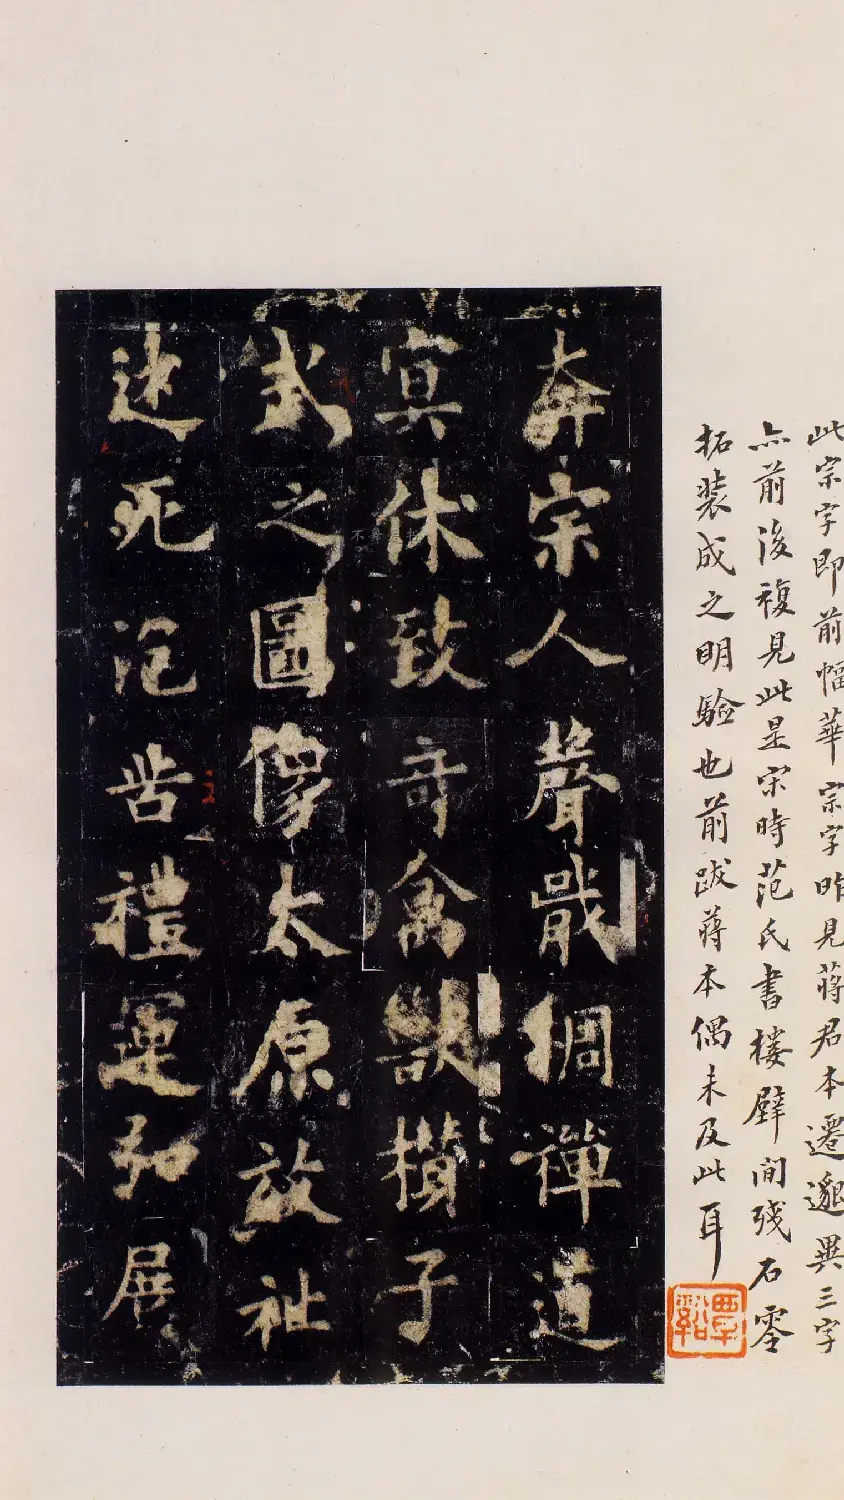 此宗字即前幅華宗字昨見蔣君本遷邈異三字
亦前後複見此是宋時范氏書樓壁間殘石零
拓裝成之明驗也前跋蔣本偶未及此耳
覃谿
奔宗人聲戢綢禪道
冥休致奇禽獸櫕子
武之圖像太原放祉
迷死泡皆禮運弘展